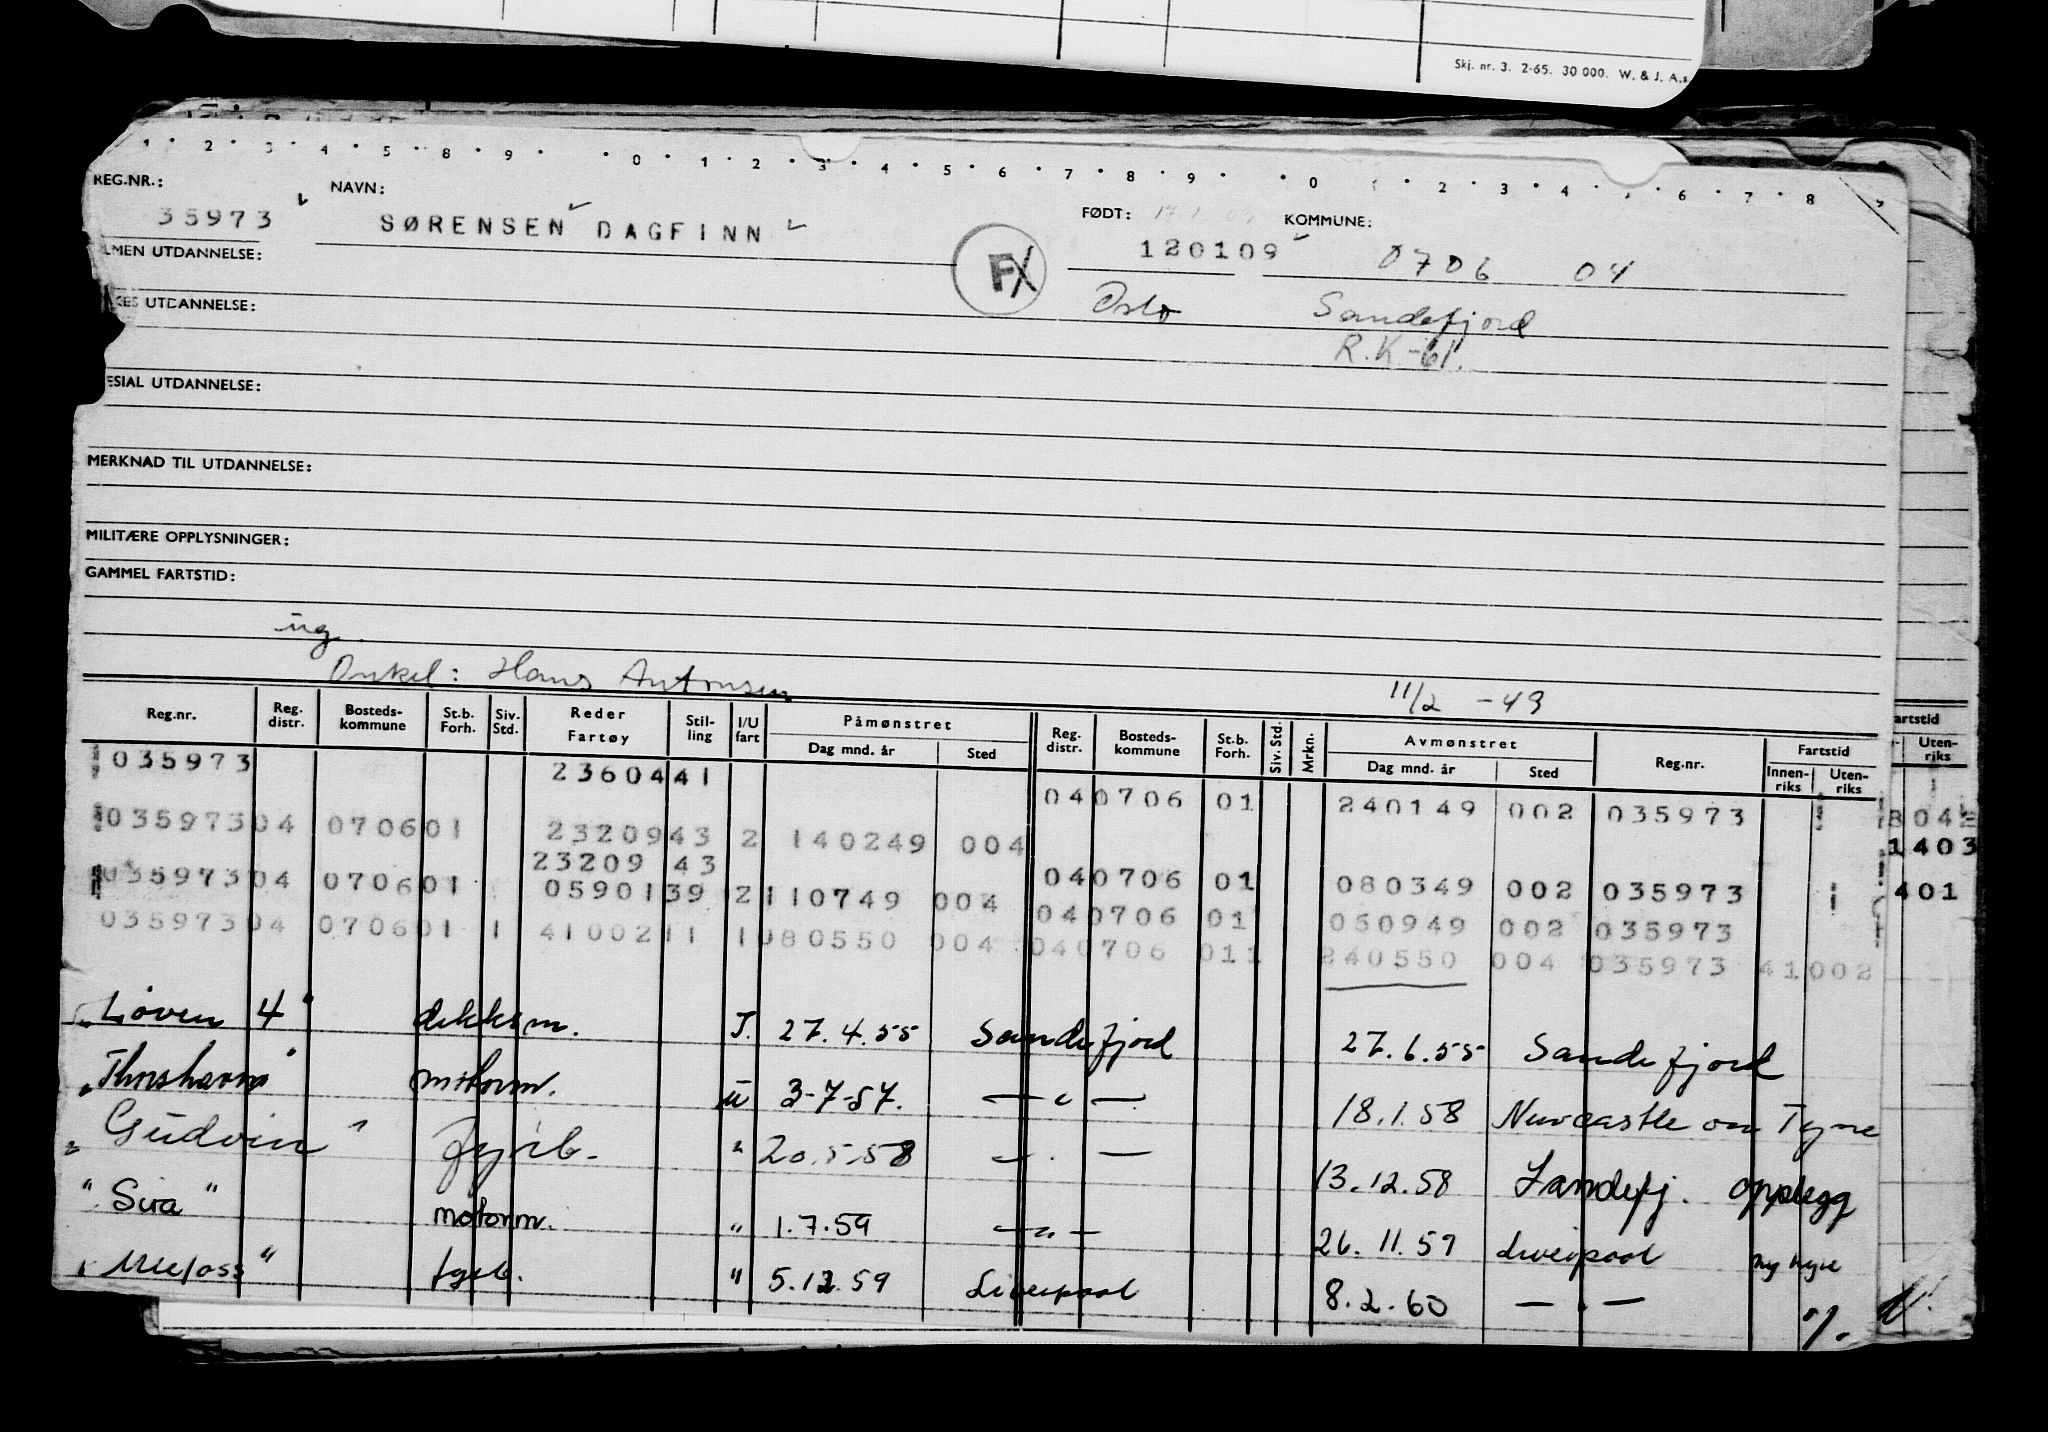 Skj. nr. 3. 2-65. 30 000. W. & J. A.s
1 · 2 · 3 · 4 · 5 · 8 · 9 · · 0 · 1 · 2 · 3 · 4 · 5 · 6 · 7 · 8 · 9 · · 0 · · 2 · 3 · 4 · · 6 · 7 · 8
REG.NR.: NAVN: FØDT: KOMMUNE:
35973 SØRENSEN DAGFINN 120109 0706 04
LMEN UTDANNELSE: FX
GES UTDANNELSE: Oslo Sandefjord
R.K.-61.
ESIAL UTDANNELSE:
MERKNAD TIL UTDANNELSE:
MILITÆRE OPPLYSNINGER:
GAMMEL FARTSTID:
ug.
Onkel: Hans Antonsen 11/2 -49
Reg.nr. Reg. distr. Bosteds-kommune St.b. Forh. Siv. Std. Reder Fartøy Stil-ling I/U fart Påmønstret Dag mnd. år Sted Reg. distr. Bosteds-kommune St.b. Forh. Siv. Std. Mrkn. Avmønstret Dag mnd. år Sted Reg.nr. Fartstid Innen-riks Uten-riks
artstid Uten-riks
035973 2360441 040706 01 240149 002 035973
03597304 070601 2320943 2 140249 004
23209 43 040706 01 080349 002 035973
03597304 070601 0590139 2 110749 004 040706 01 050949 002 035973
03597304 070601 1 4100211 1 080550 004 040706 011 240550 004 035973 41002
1403
401
"Løven 4" dekksm. I. 27.4.55 Sandefjord 27.6.55 Sandefjord
"Thorshavn" motorm. u 3-7-57. — " — 18.1.58 Newcastle on Tyne
"Gudvin" fyrb. " 20.5.58 — " — 13.12.58 Sandefj. opplegg
"Sira" motorm. " 1.7.59 — " — 26.11.59 Liverpool ny hyre
" fyrb. " 5.12.59 Liverpool 8.2.60 — " —